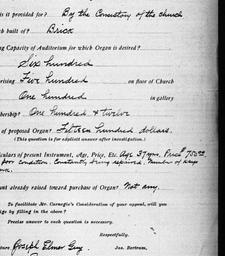 is it provided for? By the Consistory of the church
ch built of? Brick
ng Capacity of Auditorium for which Organ is desired?
Six hundred
rising Five hundred on floor of Church
One hundred in gallery
bership? One hundred & twelve
of proposed Organ? Fifteen hundred dollars.
(This question is for explicit answer after investigation.)
iculars of present Instrument, Age, Price, Etc. Age 37 yrs. Price $700.00
poor condition. Constantly being repaired. Number of keys
unt already raised toward purchase of Organ? Not any.
To facilitate Mr. Carnegie's Consideration of your appeal, will you
ige by filling in the above?
Precise answer to each question is necessary.
Respectfully,
ature Joseph Elmer Guy Jas. Bertram,